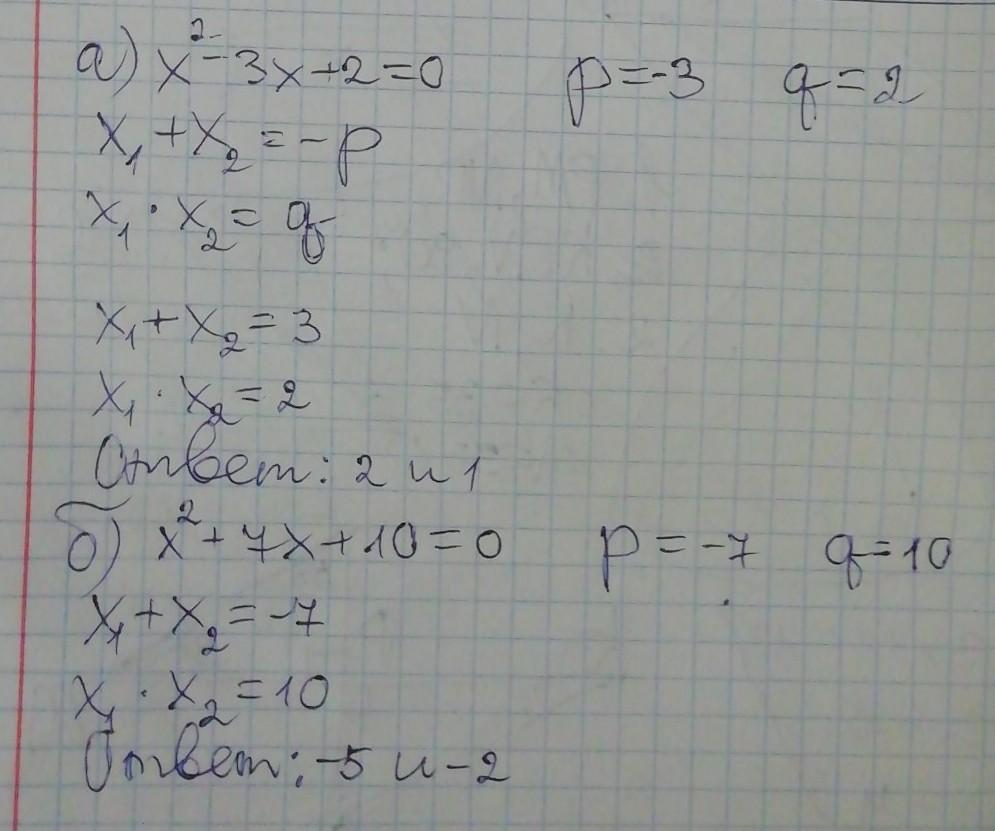 а) x² - 3x + 2 = 0 p = -3 q = 2
x₁ + x₂ = -p
x₁ · x₂ = q
x₁ + x₂ = 3
x₁ · x₂ = 2
Ответ: 2 и 1
б) x² + 7x + 10 = 0 p = -7 q = 10
x₁ + x₂ = -7
x₁ · x₂ = 10
Ответ: -5 и -2